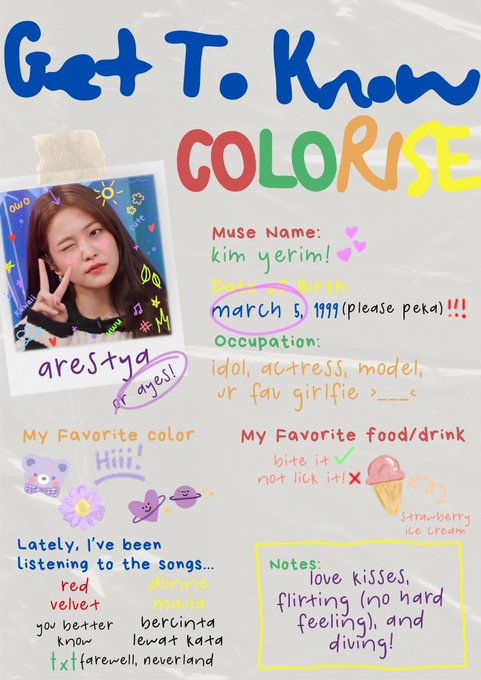 Get To Know
COLORISE
owo
cute
kawaii
uwu
arestya
or ayes!
Muse Name:
kim yerim!
Date of Birth:
march 5, 1999 (please peka) !!!
Occupation:
idol, actress, model,
ur fav girlfie >___<
My Favorite color
Hiii!
My Favorite food/drink
bite it ✓
not lick it! ✗
strawberry
ice cream
Lately, I've been
listening to the songs...
red
velvet
you better
know
donne
maula
bercinta
lewat kata
txt farewell, neverland
Notes:
love kisses,
flirting (no hard
feeling), and
diving!